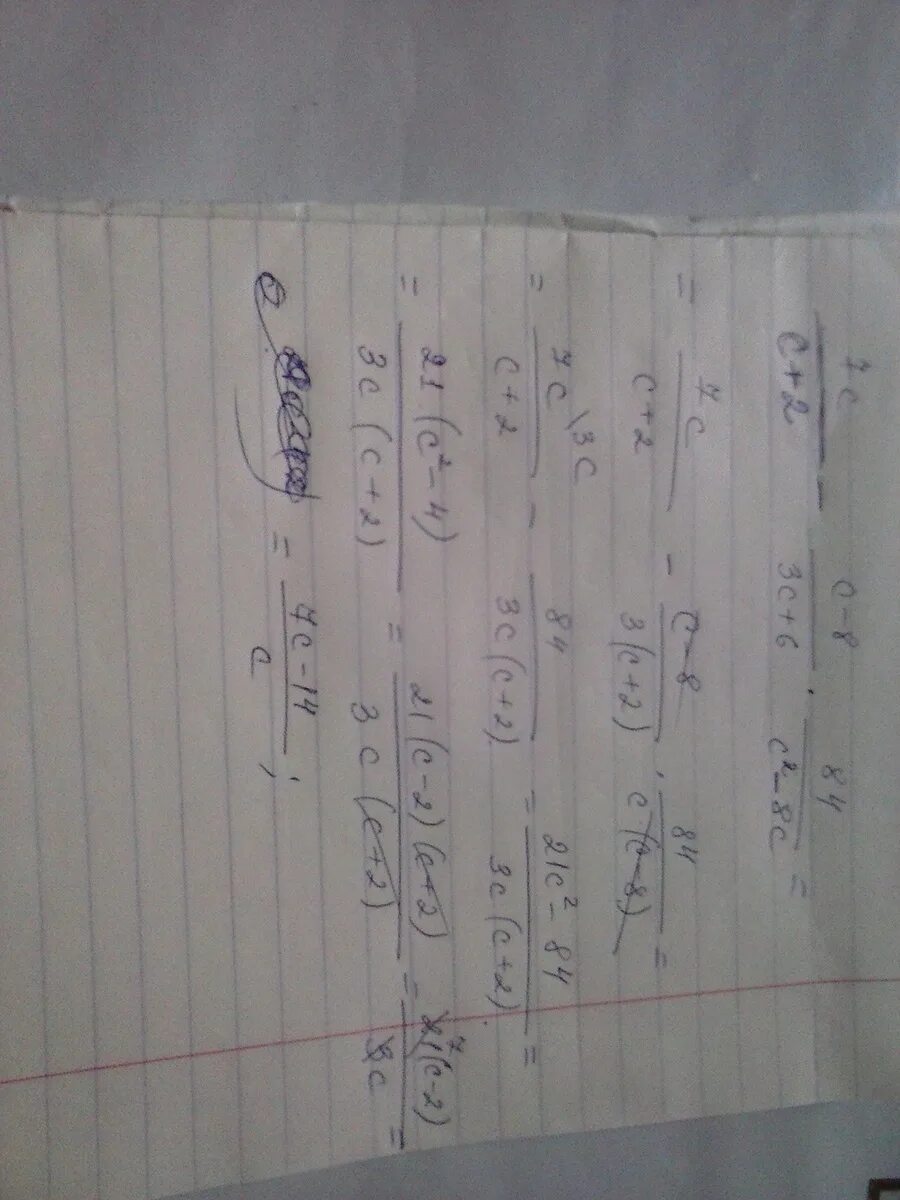 7c/(c+2) - (c-8)/(3c+6) · 84/(c²-8c) =
= 7c/(c+2) - (c-8)/(3(c+2)) · 84/(c(c-8)) =
= 7c\3c/(c+2) - 84/(3c(c+2)) = (21c²-84)/(3c(c+2)) =
= 21(c²-4)/(3c(c+2)) = 21(c-2)(c+2)/(3c(c+2)) = 21 7(c-2)/(3c) =
= (7c-14)/c ;